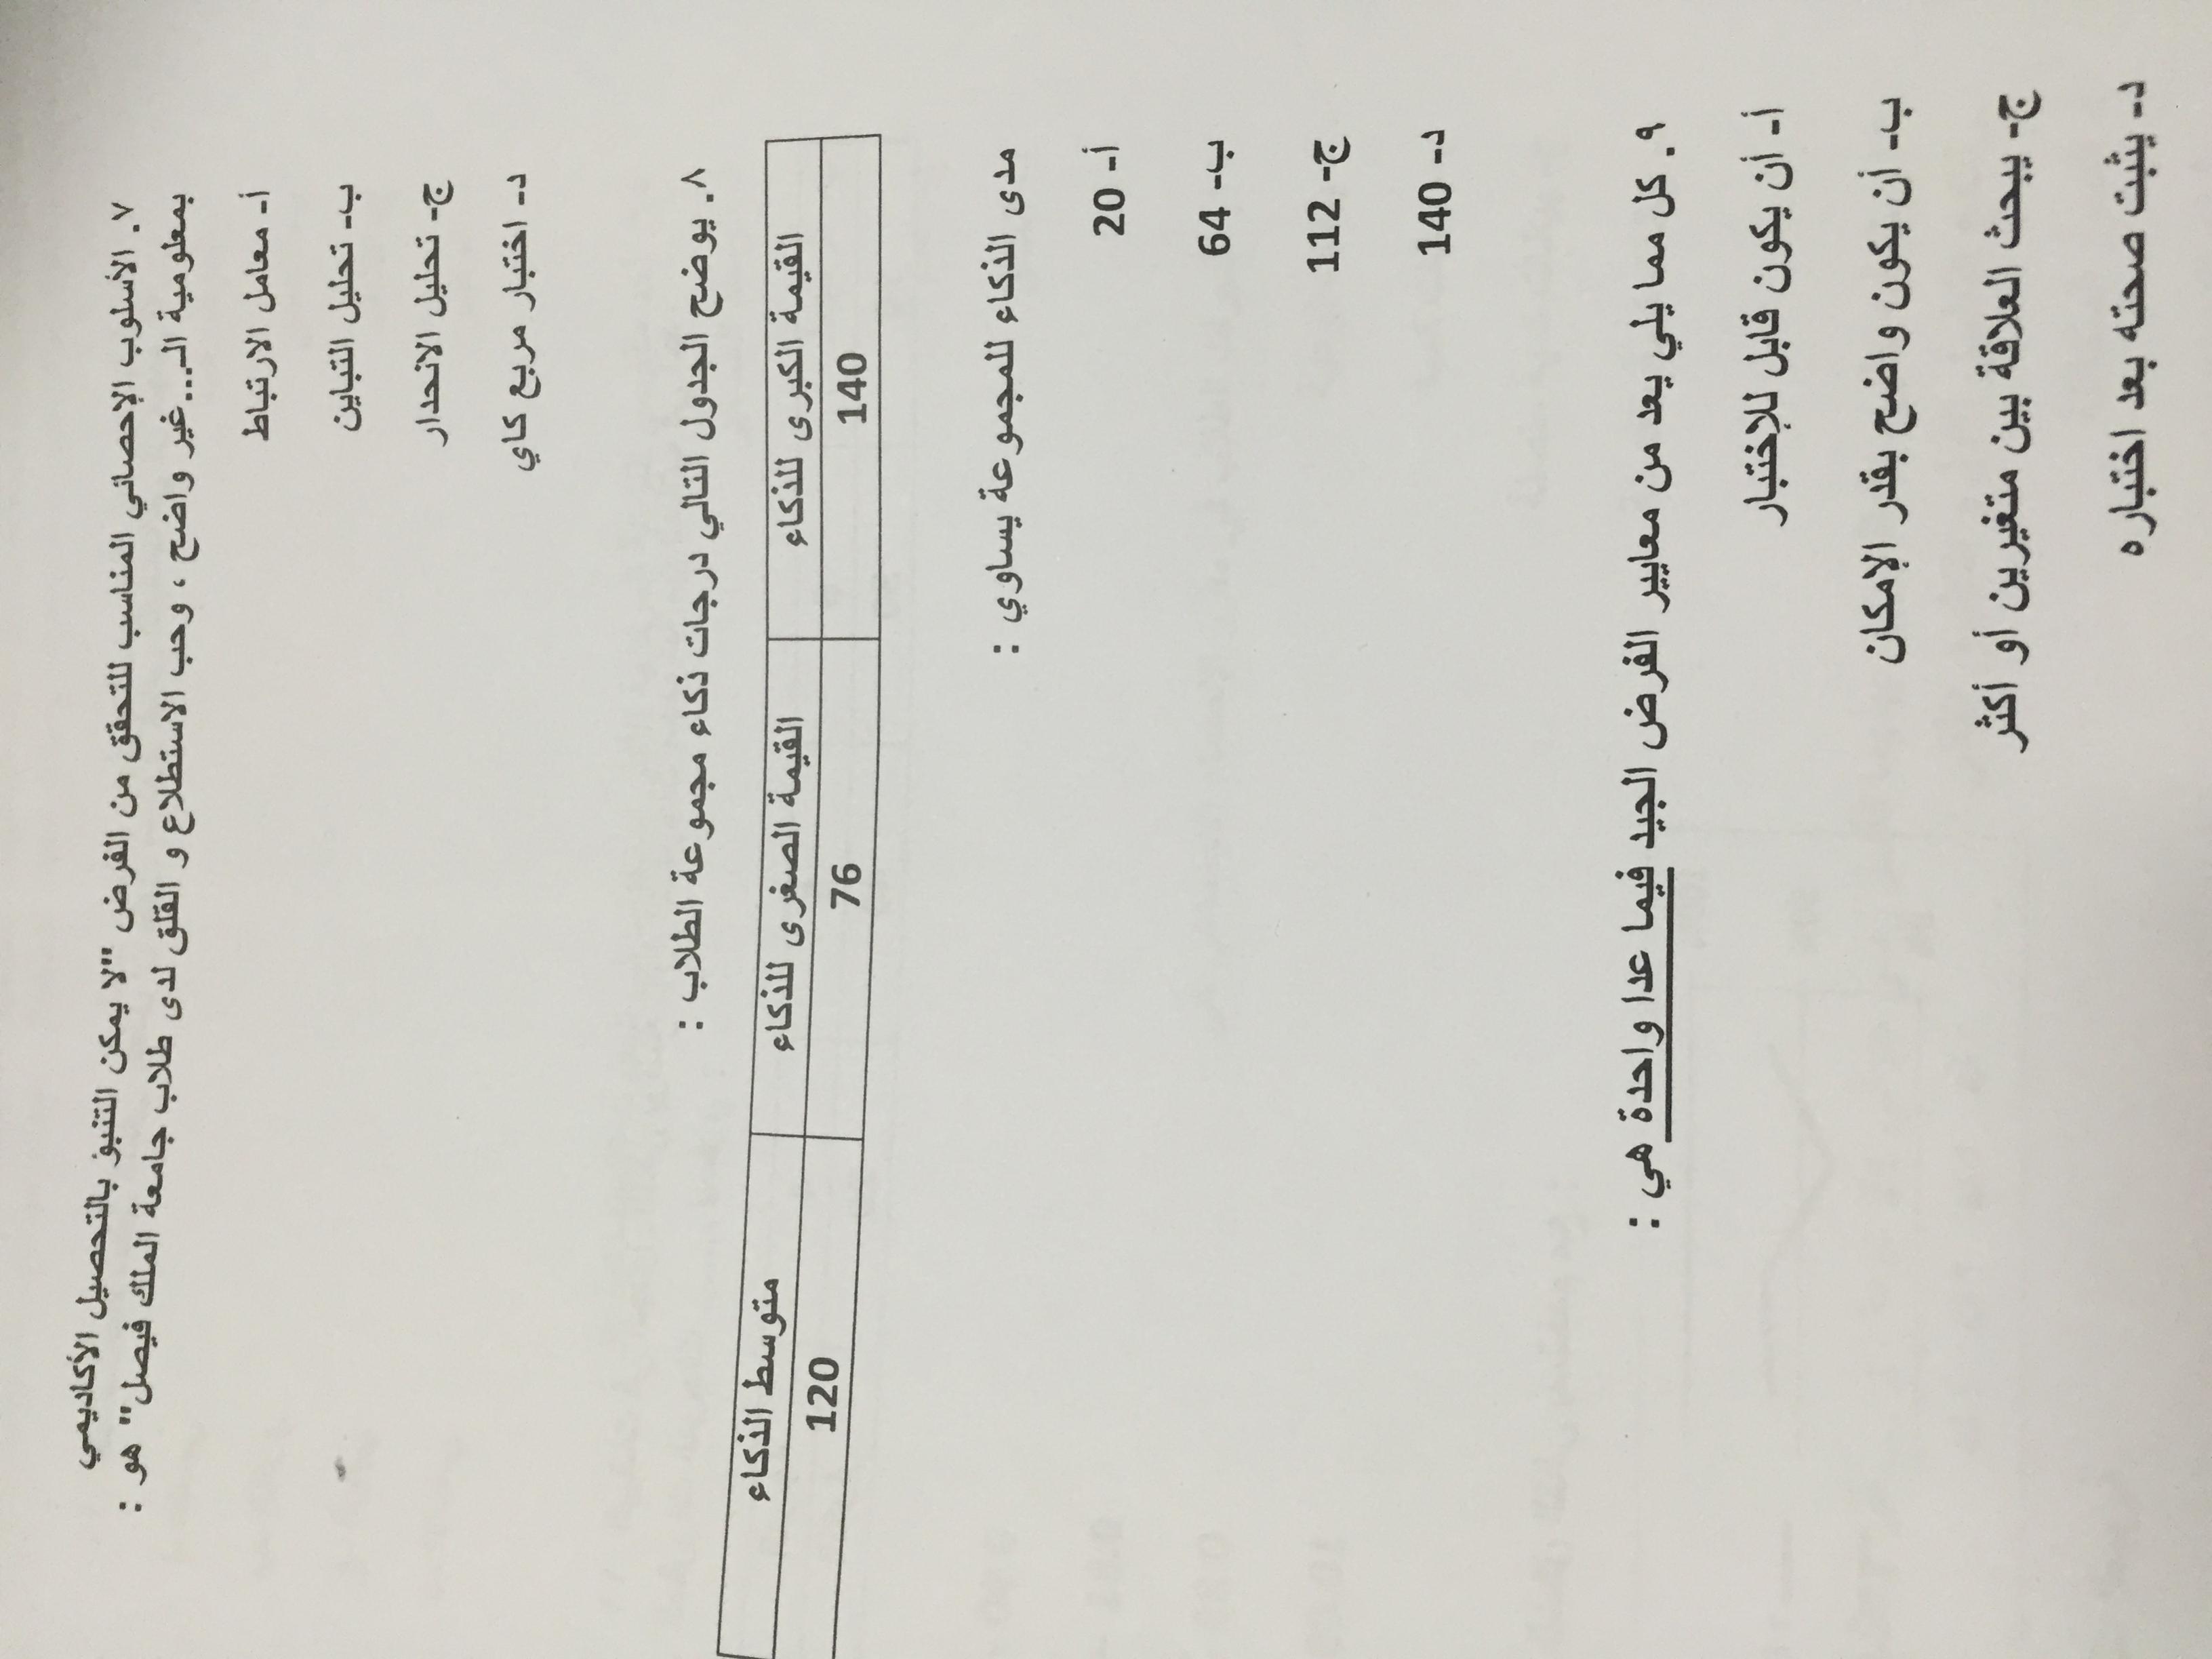 ٧. الأسلوب الإحصائي المناسب للتحقق من الفرض "لا يمكن التنبؤ بالتحصيل الأكاديمي
بمعلومية الـ...غير واضح ، وحب الاستطلاع و القلق لدى طلاب جامعة الملك فيصل" هو :
أ- معامل الارتباط
ب- تحليل التباين
ج- تحليل الانحدار
د- اختبار مربع كاي
٨. يوضح الجدول التالي درجات ذكاء مجموعة الطلاب :
القيمة الكبرى للذكاء القيمة الصغرى للذكاء متوسط الذكاء
140 76 120
مدى الذكاء للمجموعة يساوي :
أ- 20
ب- 64
ج- 112
د- 140
٩. كل مما يلي يعد من معايير الفرض الجيد فيما عدا واحدة هي :
أ- أن يكون قابل للإختبار
ب- أن يكون واضح بقدر الإمكان
ج- يبحث العلاقة بين متغيرين أو أكثر
د- يثبت صحته بعد اختباره